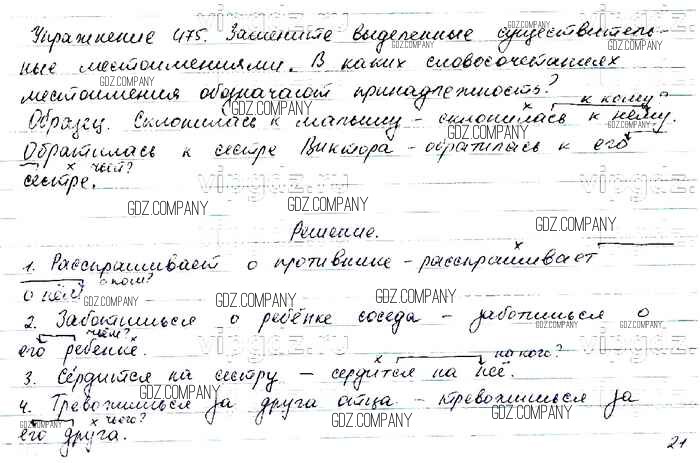 Упражнение 475. Замените выделенные существитель-
ные местоимениями. В каких словосочетаниях
местоимения обозначают принадлежность?
к кому?
Образец. Склонилась к малышу - склонилась к нему.
Обратилась к сестре Виктора - обратилась к его
чьей?
сестре.
Решение.
1. Расспрашивает о противнике - расспрашивает
о ком?
о нём.
2. Заботишься о ребёнке соседа - заботишься о
чьём?
его ребенке.
на кого?
3. Сердится на сестру - сердится на неё.
4. Тревожишься за друга отца - тревожишься за
чьего?
его друга.
21
GDZ.COMPANY
vipgdz.ru